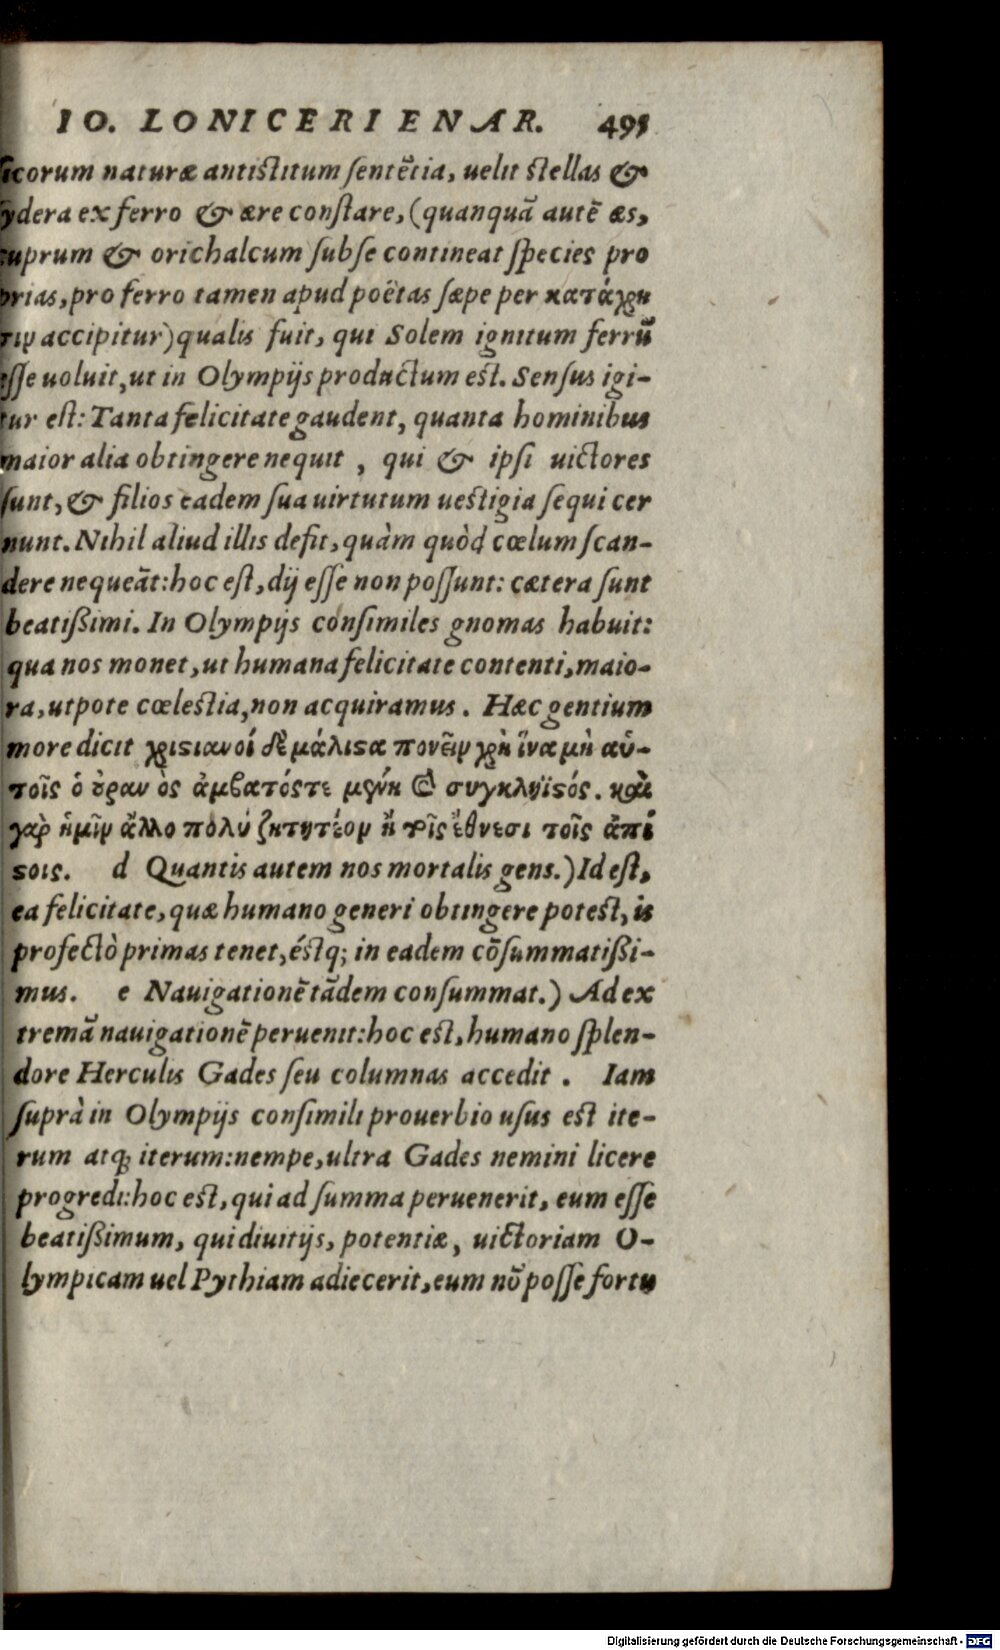 IO. LONICERI ENAR. 495
ſicorum naturæ antiſtitum ſentētia, uelit ſtellas &
ſydera ex ferro & ære conſtare, (quanquā autē æs,
cuprum & orichalcum ſub ſe contineat ſpecies pro
prias, pro ferro tamen apud poëtas ſæpe per κατάχρη
σιν accipitur) qualis fuit, qui Solem ignitum ferrū
eſſe uoluit, ut in Olympijs productum eſt. Senſus igi-
tur eſt: Tanta felicitate gaudent, quanta hominibus
maior alia obtingere nequit, qui & ipſi uictores
ſunt, & filios eadem ſua uirtutum ueſtigia ſequi cer
nunt. Nihil aliud illis defit, quàm quòd cœlum ſcan-
dere nequeāt: hoc eſt, dij eſſe non poſſunt: cætera ſunt
beatißimi. In Olympijs conſimiles gnomas habuit:
qua nos monet, ut humana felicitate contenti, maio-
ra, utpote cœleſtia, non acquiramus. Hæc gentium
more dicit χριϛιανοί δὲ μάλιϛα πονεῖν χρὴ ἵνα μὴ αὐ-
τοῖς ὁ ȣ̓ραν ὸς ἀμβατόϛτε συγκλήϊϛός. καὶ
γὰρ ἡμῖν ἄλλο πολύ ζητητέον ἢ τοῖς ἔθνεσι τοῖς ἀπί
ϛοις. d Quantis autem nos mortalis gens.) Id eſt,
ea felicitate, quæ humano generi obtingere poteſt, is
profectò primas tenet, éſtq; in eadem cōſummatißi-
mus. e Nauigationē tādem conſummat.) Ad ex
tremā nauigationē peruenit: hoc eſt, humano ſplen-
dore Herculis Gades ſeu columnas accedit. Iam
ſuprà in Olympijs conſimili prouerbio uſus eſt ite-
rum atq; iterum: nempe, ultra Gades nemini licere
progredi: hoc eſt, qui ad ſumma peruenerit, eum eſſe
beatißimum, qui diuitijs, potentiæ, uictoriam O-
lympicam uel Pythiam adiecerit, eum nō poſſe fortu
Digitalisierung gefördert durch die Deutsche Forschungsgemeinschaft - DFG